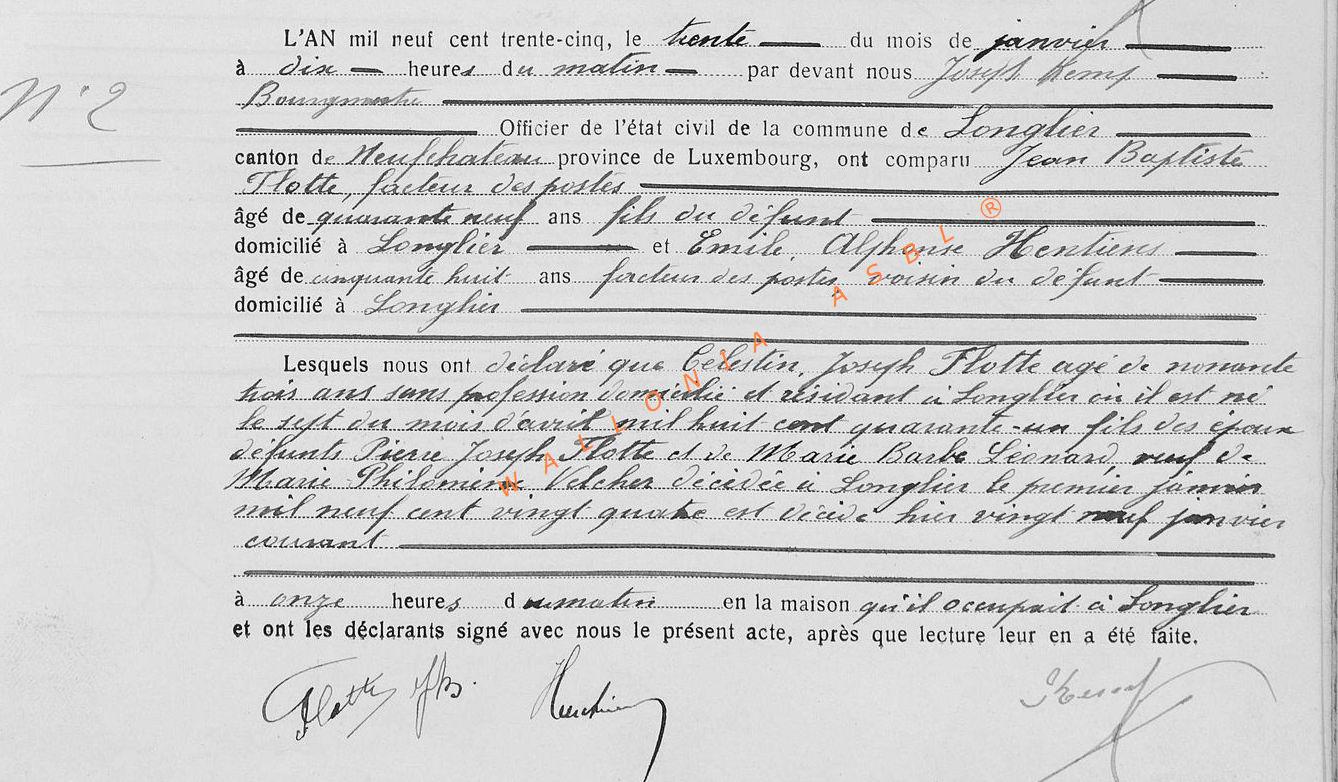 L'AN mil neuf cent trente-cinq, le trente du mois de janvier
à dix heures du matin par devant nous Joseph Kemp
Bourgmestre
N°2
Officier de l'état civil de la commune de Longlier
canton de Neufchateau province de Luxembourg, ont comparu Jean Baptiste
Flotte, facteur des postes
âgé de quarante neuf ans fils du défunt
domicilié à Longlier et Emile, Alphonse
âgé de cinquante huit ans facteur des postes, voisin du défunt
domicilié à Longlier
Lesquels nous ont déclaré que Célestin, Joseph Flotte agé de nonante
trois ans sans profession domicilié et résidant à Longlier où il est né
le sept du mois d'avril mil huit cent quarante-un fils des époux
défunts Pierre Joseph Flotte et de Marie Barbe Léonard, veuf de
Marie Philomène Velcher décédée à Longlier le premier janvier
mil neuf cent vingt quatre est décédé hier vingt neuf janvier
courant
à onze heures du matin en la maison qu'il occupait à Longlier
et ont les déclarants signé avec nous le présent acte, après que lecture leur en a été faite.
Flotte JB. Kemp
WALLONIA ASBL ®